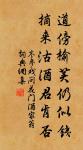 道傍榆荚仍似钱
摘来沽酒君肯否
岑参戏问花门酒家翁
词典网集